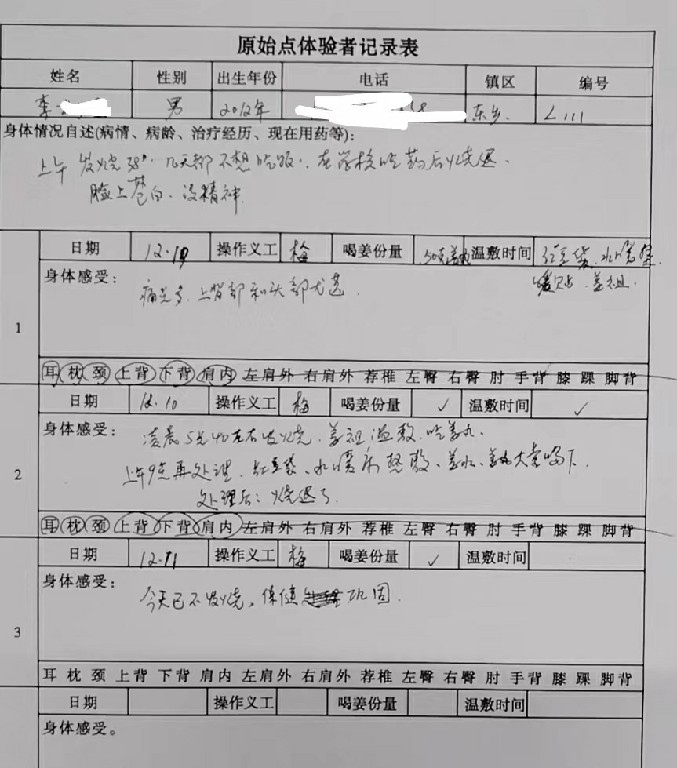 原始点体验者记录表
姓名 性别 出生年份 电话 镇区 编号
李 男 2012年 东乡 L111
身体情况自述(病情、病龄、治疗经历、现在用药等):
上午发烧38°. 几天都不想吃饭. 在学校吃药后烧退.
脸上苍白、没精神
日期 12.10 操作义工 梅 喝姜份量 温敷时间 红豆袋、水暖
身体感受: 痛点多、上背部和头部尤甚.
1
耳 枕 颈 上背 下背 肩内 左肩外 右肩外 荐椎 左臀 右臀 肘 手背 膝 踝 脚背
日期 12.10 操作义工 梅 喝姜份量 ✓ 温敷时间 ✓
身体感受: 凌晨5点40左右发烧. 姜粗温敷. 吃姜丸.
上午9点再处理. 红豆袋、水暖 热敷、姜水、姜丸大量喝下
2
处理后: 烧退了
耳 枕 颈 上背 下背 肩内 左肩外 右肩外 荐椎 左臀 右臀 肘 手背 膝 踝 脚背
日期 12.11 操作义工 梅 喝姜份量 ✓ 温敷时间
身体感受: 今天已不发烧, 保健 巩固.
3
耳 枕 颈 上背 下背 肩内 左肩外 右肩外 荐椎 左臀 右臀 肘 手背 膝 踝 脚背
日期 操作义工 喝姜份量 温敷时间
身体感受。